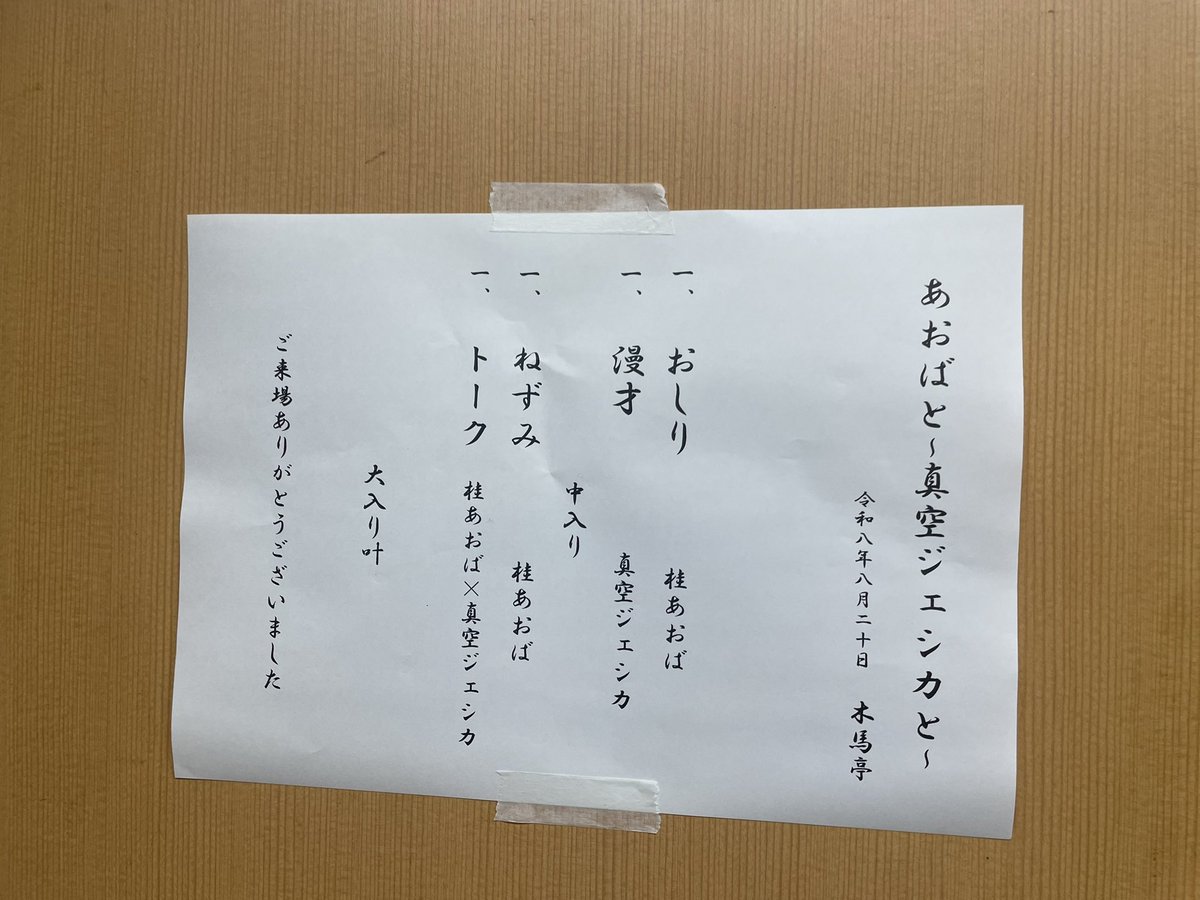 あおばと〜真空ジェシカと〜
令和八年八月二十日　木馬亭
一、おしり　桂あおば
一、漫才　真空ジェシカ
中入り
一、ねずみ　桂あおば
一、トーク　桂あおば×真空ジェシカ
大入り叶
ご来場ありがとうございました